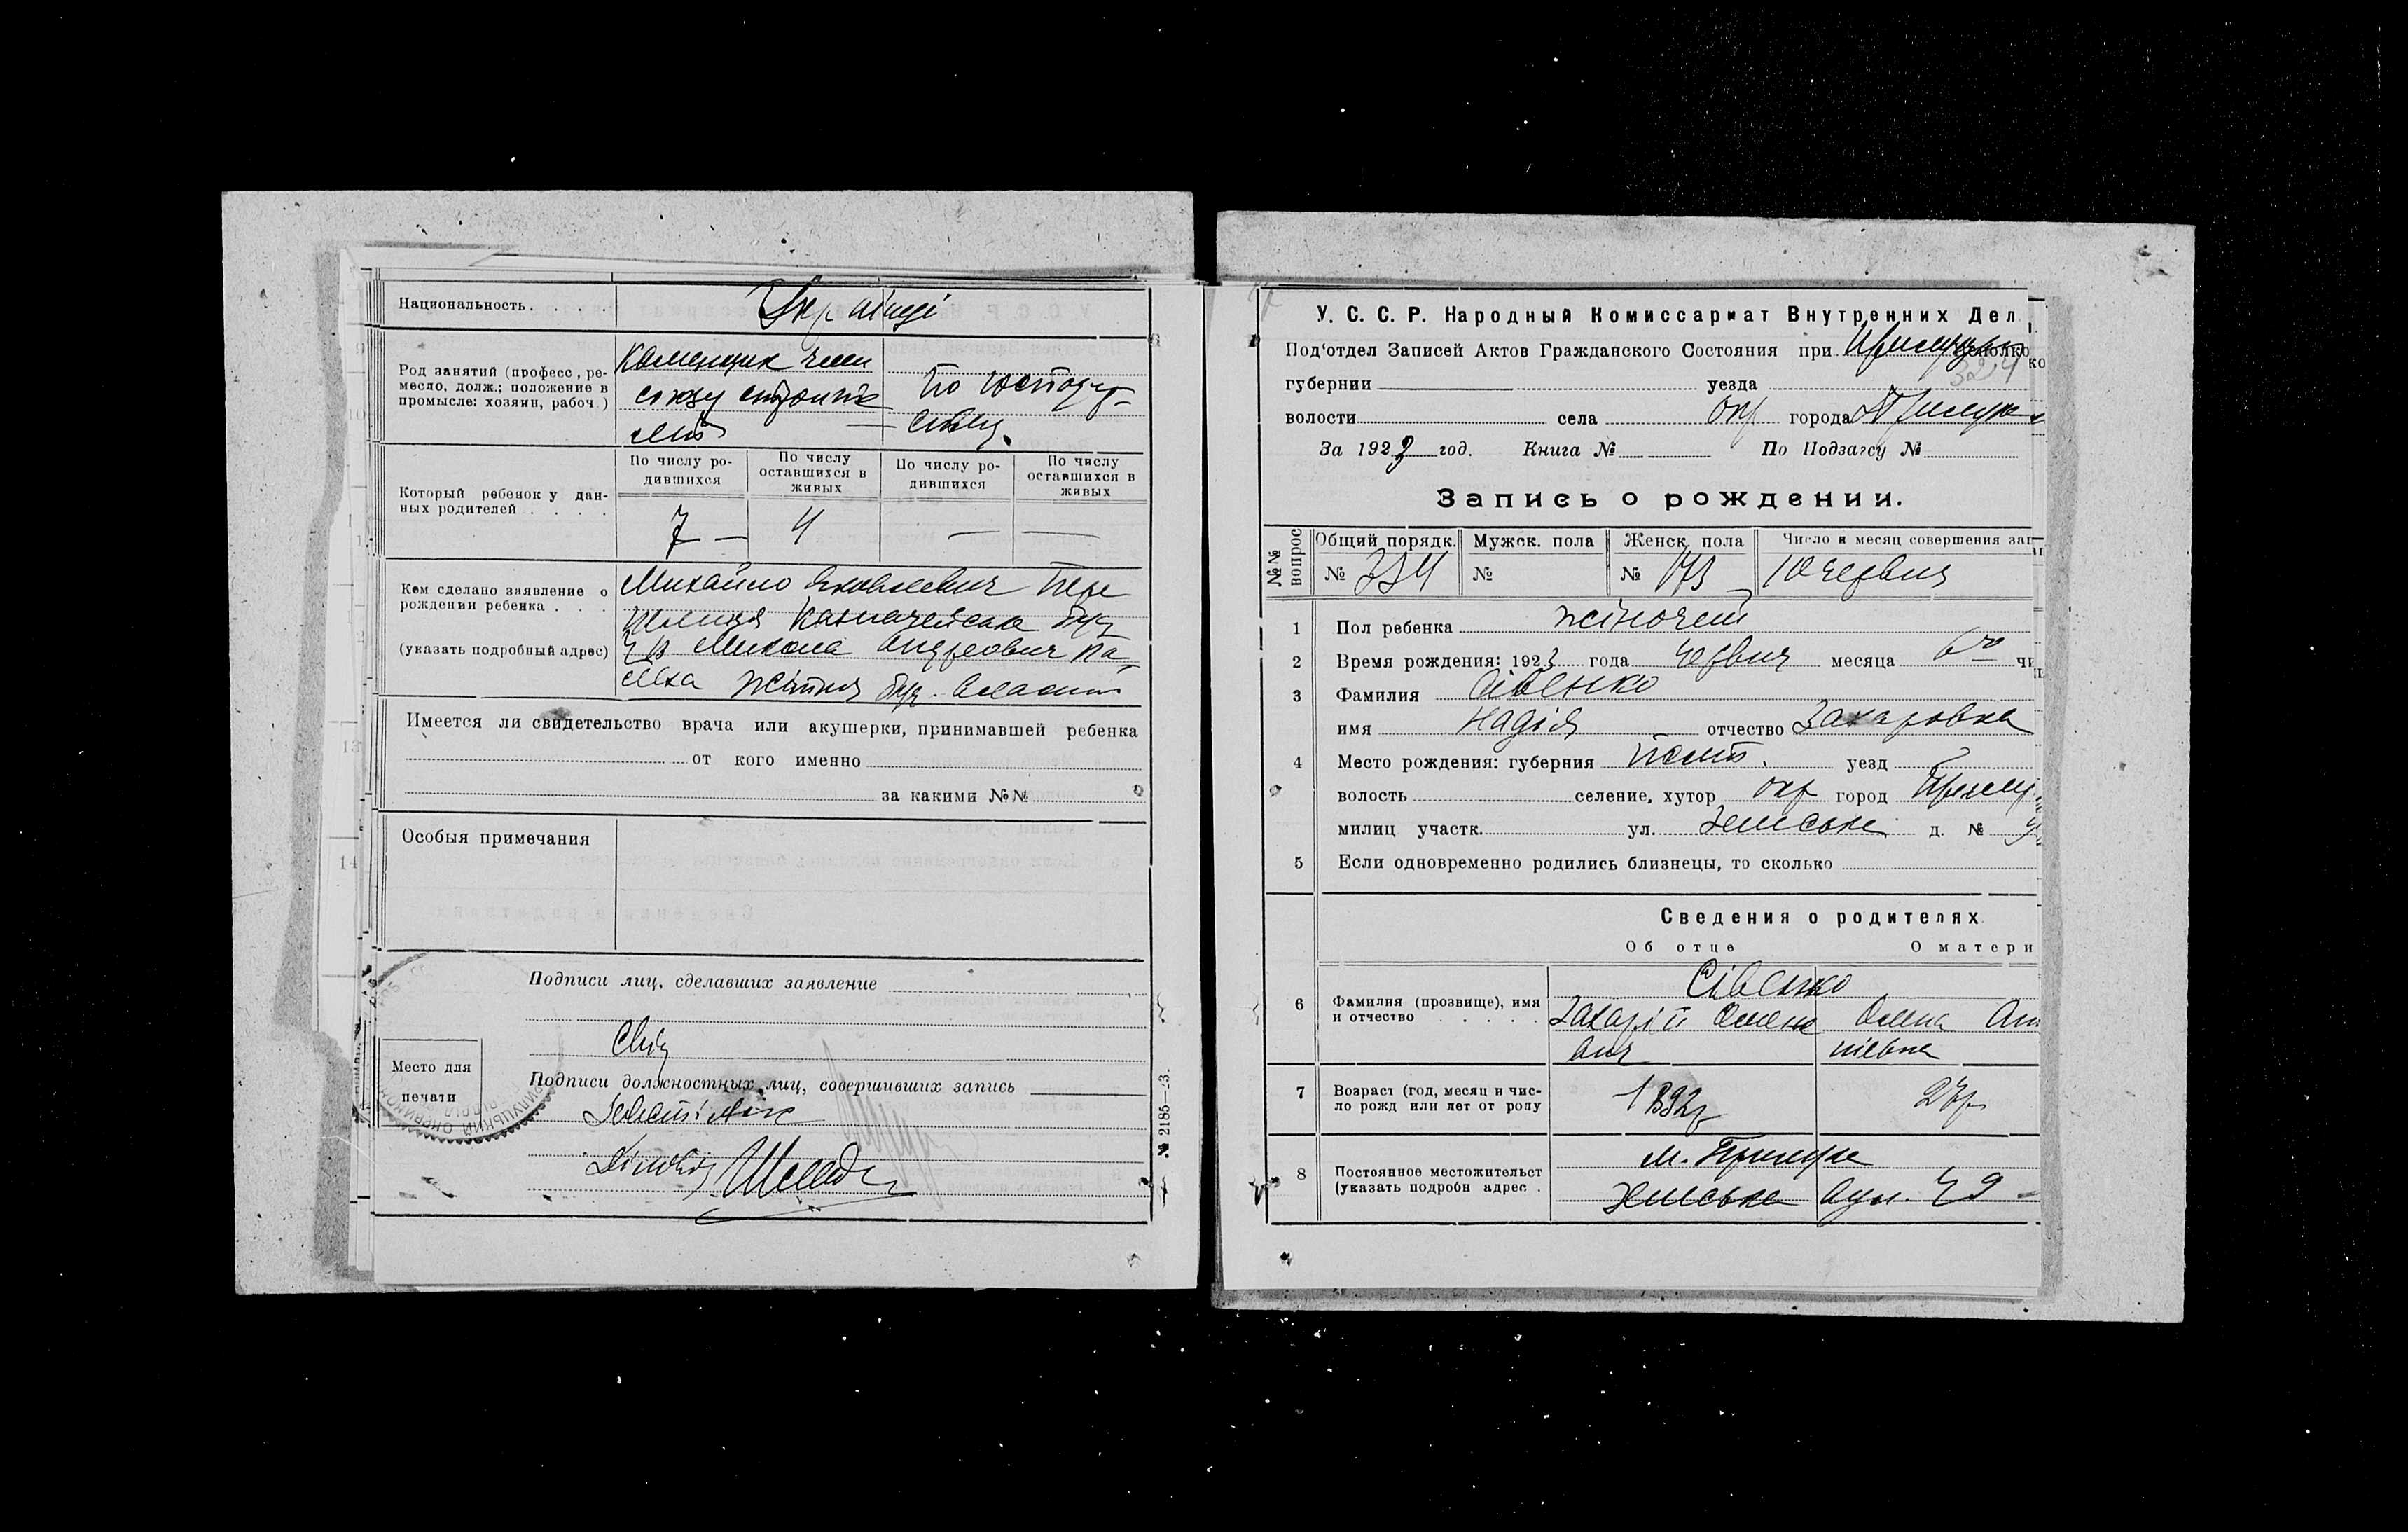 Национальность. . . . . Українці
Род занятий (професс, ре-
месло, долж.; положение в
промысле: хозяин, рабоч.)
Каменщик член
союзу строите
лів
по господар-
ству.
Который ребенок у дан-
ных родителей . . . .
По числу ро-
дившихся
По числу
оставшихся в
живых
По числу ро-
дившихся
По числу
оставшихся в
живых
7 — 4 — —
Кем сделано заявление о
рождении ребенка . . .
(указать подробный адрес)
Михайло Яковлевич Пере
Казначейська буд
Микола Андреович Па-
Имеется ли свидетельство врача или акушерки, принимавшей ребенка
от кого именно
за какими №№
Особыя примечания
Подписи лиц, сделавших заявление
Подписи должностных лиц, совершивших запись
Место для
печати
№ 2185—23.
У. С. С. Р. Народный Комиссариат Внутренних Дел
Под'отдел Записей Актов Гражданского Состояния при
324
губернии уезда
волости села окр города Прилуки
За 1923 год. Книга № По Подзагсу №
Запись о рождении.
№№ вопрос
Общий порядк. Мужск. пола Женск. пола Число и месяц совершения зап
№ 334 № № 173 10 червня
1 Пол ребенка жіночий
2 Время рождения: 1923 года червня месяца 6го чи
3 Фамилия Сівенко
имя Надія отчество Захаровна
4 Место рождения: губерния Полт. уезд
волость селение, хутор окр город Прилу
милиц участк. ул. Земська д. № 9
5 Если одновременно родились близнецы, то сколько
Сведения о родителях
Об отце О матери
6 Фамилия (прозвище), имя
и отчество . . . . .
Сівенко
Захарій Семено Олена
вич
7 Возраст (год, месяц и чис-
ло рожд или лет от роду
1892р 27р
8 Постоянное местожительст
(указать подробн адрес .
м. Прилуки
Земська вул. Ч 9